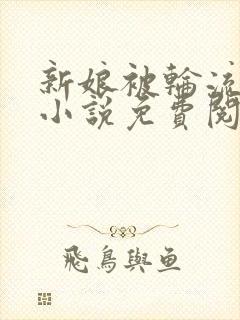 新娘被輪流
小說免費閱
飛鳥與魚